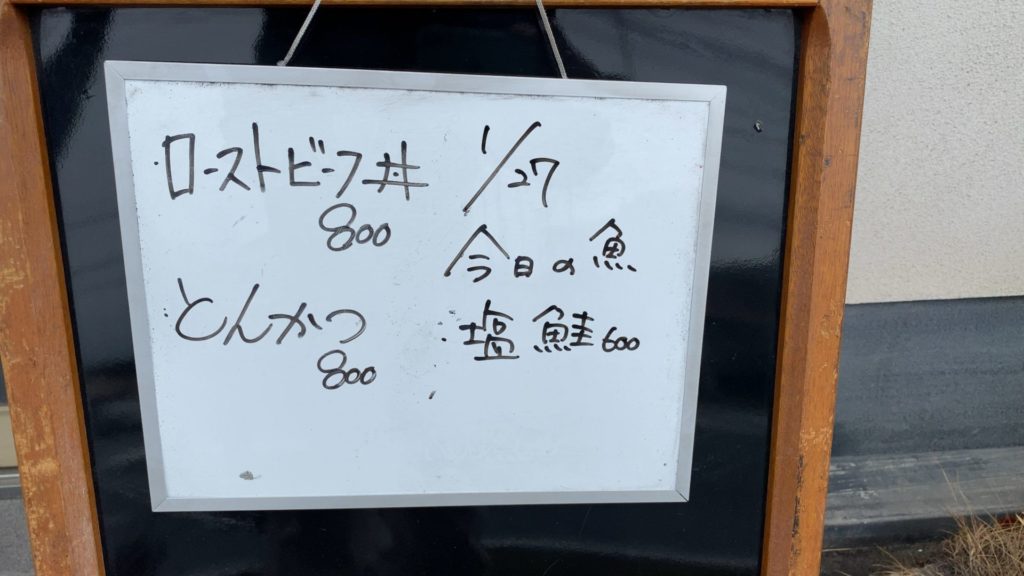 ローストビーフ丼
800
とんかつ
800
1/27
今日の魚
塩鮭600